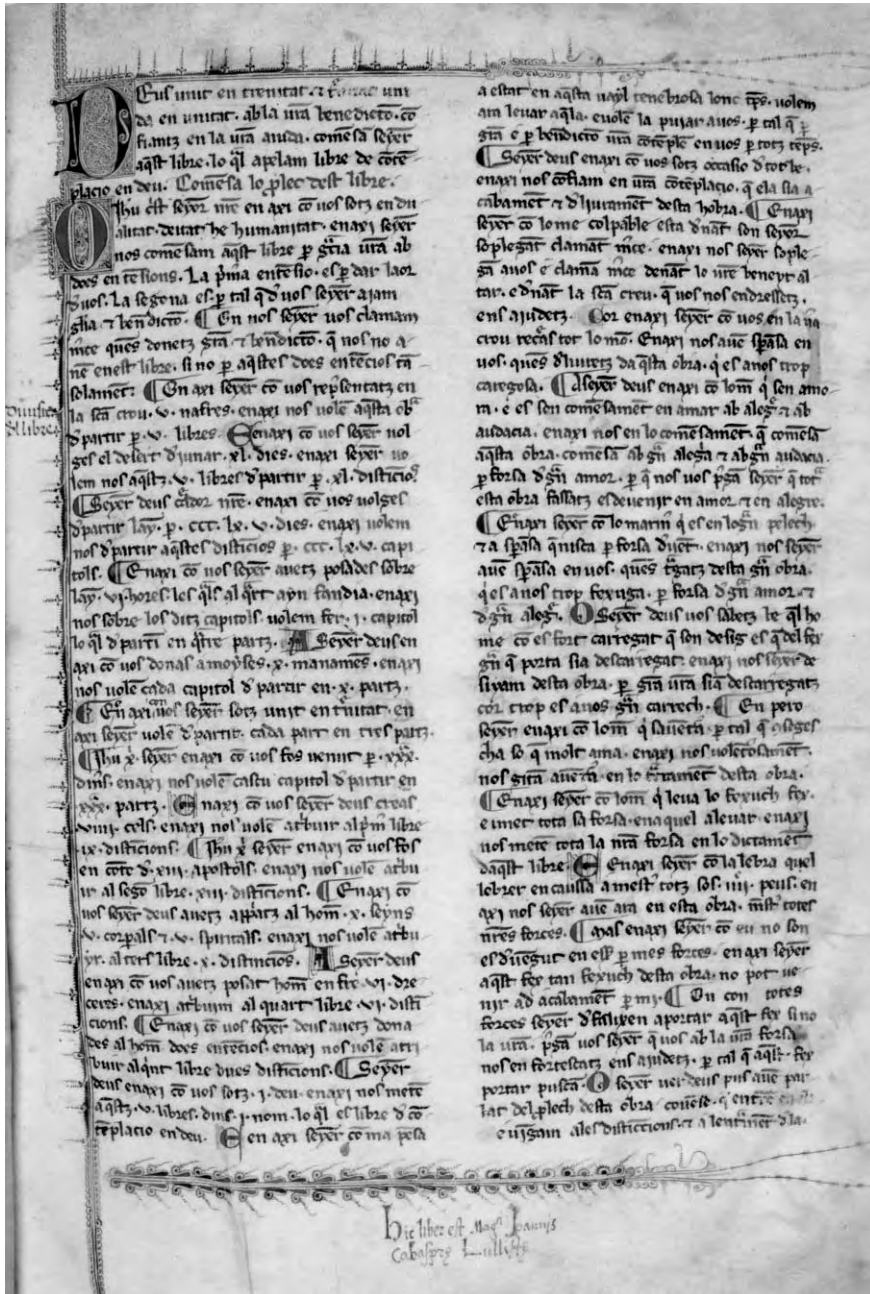 Eus unit en trenitat ⁊ uni
da en unitat ab la ur̄a benedictō cō
fiantz en la ur̄a aiuda comēsa seyer
aq̄st libre lo q̄l apelam libre de cōtē
placio en deu Comēsa lo plec dest libre
Ihu xr̄st seyer nr̄e en axi cō uos sotz en du
alitat deitat he humanitat enaxi seyer
nos comēsam aq̄st libre p̄ grā ur̄a ab
does entēsions La p̄ma entēsio es p̄ dar laor
d uos La segona es p̄ tal q̄ d uos seyer aiam
gl̄ia ⁊ bendictō En nos seyer uos clamam
m̄ce ques donetz grā ⁊ bendictō q̄ nos no a
nē enest libre si no p̄ aq̄stes does entēcios tā
solamēt En axi seyer cō uos rep̄sentatz en
la scā crou v nafres enaxi nos uolē aq̄sta ob̄a
d partir p̄ v libres Eenaxi cō uos seyer uol
ges el desert d iunar xl dies enaxi seyer uo
lem nos aq̄stz v libres d partir p̄ xl disticiōs
Seyer deus cādor nr̄e enaxi cō uos uolges
d partir layn p̄ ccc lx v dies enaxi uolem
nos d partir aq̄stes disticios p̄ ccc lx v capi
tols Enaxi cō nos seyer auetz posades sobre
layn vi hores les q̄ls al q̄rt ayn fan dia enaxi
nos sobre los ditz capitols uolem fer i capitol
lo q̄l d partim en q̄tre partz A Seyer deus en
axi cō uos donas a moyses x manamēs enaxi
nos uolē cada capitol d partir en x partz
En axi cō uos seyer sotz unit en t̄nitat en
axi seyer uolē d partir cada part en tres partz
Ihu xr̄ seyer enaxi cō uos fos uenut p̄ xxx
dins enaxi nos uolē cascu capitol d partir en
xxx partz Enaxi cō uos seyer deus creas
viiii cels enaxi nos uolē atbuir al p̄m libre
ix disticions Ihu xr̄ seyer enaxi cō uos fos
en cōte d xiii apostols enaxi nos uolē atbu
ir al segō libre xiii disticions Enaxi cō
uos seyer deus auetz al hom x seyns
v corp̄als ⁊ v spiritals enaxi nos uolē atbu
yr al ters libre x distincios A Seyer deus
en axi cō uos auetz posat hom en fre vi dre
ceres enaxi atbuim al quart libre vi disti
cions Enaxi cō uos seyer deus auetz dona
des al hom does entēcios enaxi nos uolē atri
buir al q̄nt libre dues disticions Seyer
deus enaxi cō uos sotz i deu enaxi nos metē
aq̄stz v libres dins i nom lo q̄l es libre d cō
tēplacio en deu Een axi seyer cō ma pēsa
diuisio
d libre
a estat en aq̄sta uayl tenebrosa lonc tēps uolem
ara leuar aq̄la e uolē la puiar a uos p̄ tal q̄ p̄
grā e p̄ bendicto ur̄a cōtēplē en uos p̄ totz tēps
Seyer deus enaxi cō uos sotz occasio d tot be
enaxi nos cōfiam en ur̄a cōtēplacio q̄ ela sia a
cabamēt ⁊ d liuramēt desta hobra Enaxi
seyer cō lome colpable esta d nāt son seyer
soplegāt clamāt m̄ce enaxi nos seyer sople
gā a uos e clamā m̄ce denāt lo ur̄e beneyt al
tar e d nāt la scā creu q̄ uos nos endressetz
ens aiudetz Cor enaxi seyer cō uos en la ur̄a
crou tot lo mō Enaxi nos auē spāsa en
uos ques d liuretz da q̄sta obra q̄ es a nos trop
caregosa A Seyer deus enaxi cō lom q̄ sen amo
ra e es son comēsamēt en amar ab aleg̃ ⁊ ab
audacia enaxi nos en lo comēsamēt q̄ comēsā
aq̄sta obra comēsā ab gn̄ alegr̄a ⁊ ab gn̄ audacia
p̄ forsa d gn̄ amor p̄ q̄ nos uos p̄gā seyer q̄ tota
esta obra fassatz esdeuenir en amor ⁊ en alegre
Enaxi seyer cō lo marim q̄ es en lo gn̄ pelech
⁊ a spāsa p̄ forsa d uent enaxi nos seyer
auē spāsa en uos ques tgatz desta gn̄ obra
q̄ es a nos trop fexuga p̄ forsa d gn̄ amor ⁊
d gn̄ aleg̃ O Seyer deus uos sabetz be q̄l ho
me cō es fort carregat q̄ son desig es q̄ del fex
gn̄ q̄ porta sia descarregat enaxi nos seyer de
siram desta obra p̄ grā ur̄a siā descarregatz
cor trop es a nos gn̄ carrech En pero
seyer enaxi cō lom q̄ p̄ tal q̄
so q̄ molt ama enaxi nos uolētosamēt
nos gitā en lo desta obra
Enaxi seyer cō lom q̄ leua lo fexuch fex
e met tota sa forsa en aquel a leuar enaxi
nos metē tota la nr̄a forsa en lo dictamēt
daq̄st libre Enaxi seyer cō la lebra quel
lebrer encaussa totz sos iiii peus en
axi nos seyer auē ara en esta obra totes
nr̄es forces Mas enaxi seyer cō eu no son
es d uēgut en eēr p̄ mes forces enaxi seyer
aq̄st fex tan fexuch desta obra no pot ue
nir ad acabamēt p̄ mi On con totes
forces seyer d a portar aq̄st fex si no
la ur̄a p̄gā uos seyer q̄ uos ab la ur̄a forsa
nos enfortescatz ens aiudetz p̄ tal q̄ aq̄st fex
portar puscā O seyer uer deus pus auē par
lat del plech desta obra couēse q̄
e uigam a les disticcions ⁊ a la
Hic liber est Magr̄i Joannis
Cabaspre Lulliste